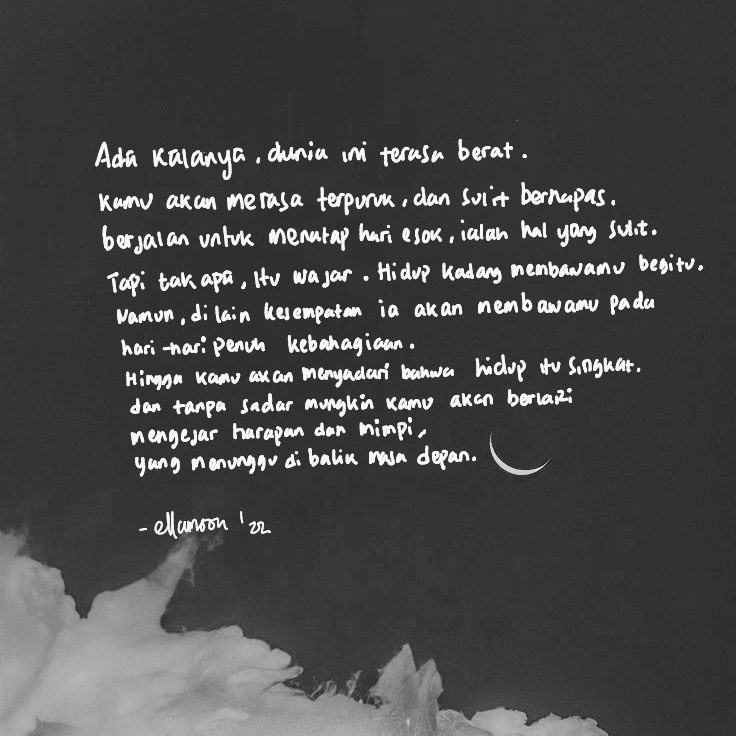 Ada kalanya, dunia ini terasa berat.
kamu akan merasa terpuruk, dan sulit bernapas.
berjalan untuk menatap hari esok, ialah hal yang sulit.
Tapi tak apa, itu wajar. Hidup kadang membawamu begitu.
Namun, di lain kesempatan ia akan membawamu pada
hari-hari penuh kebahagiaan.
Hingga kamu akan menyadari bahwa hidup itu singkat.
dan tanpa sadar mungkin kamu akan berlari
mengejar harapan dan mimpi,
yang menunggu di balik masa depan.
- ellamoon '22